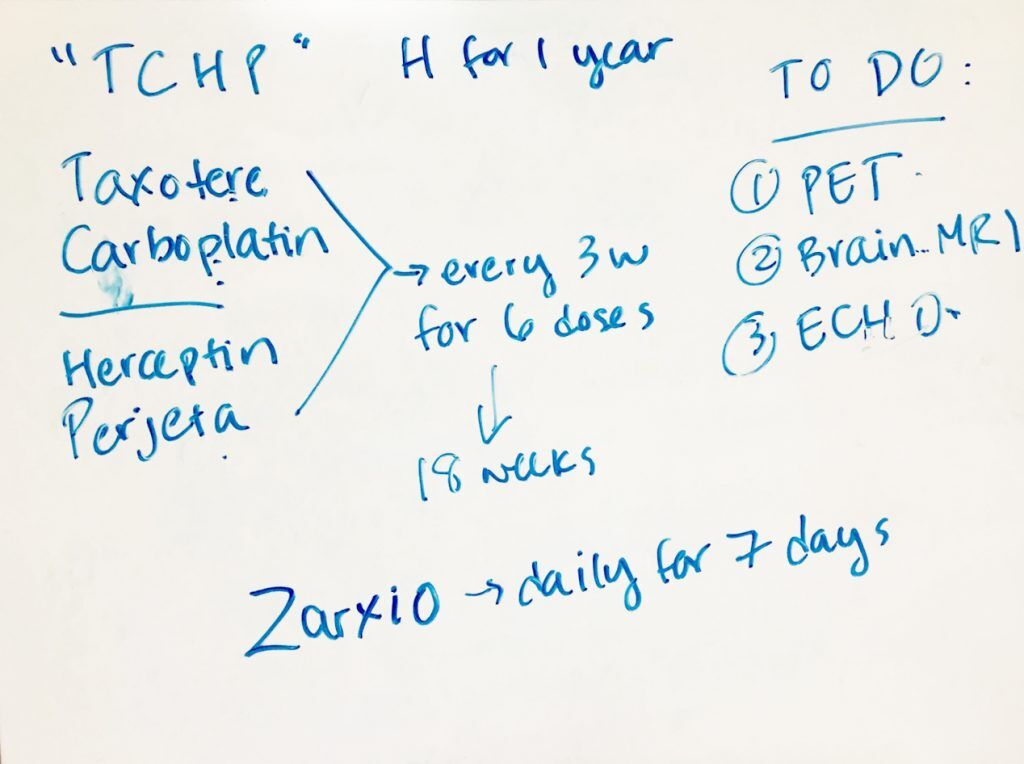 "TCHP" H for 1 year
Taxotere
Carboplatin
Herceptin
Perjeta
→ every 3w
for 6 doses
↓
18 weeks
TO DO:
① PET
② Brain MRI
③ ECHO
Zarxio → daily for 7 days